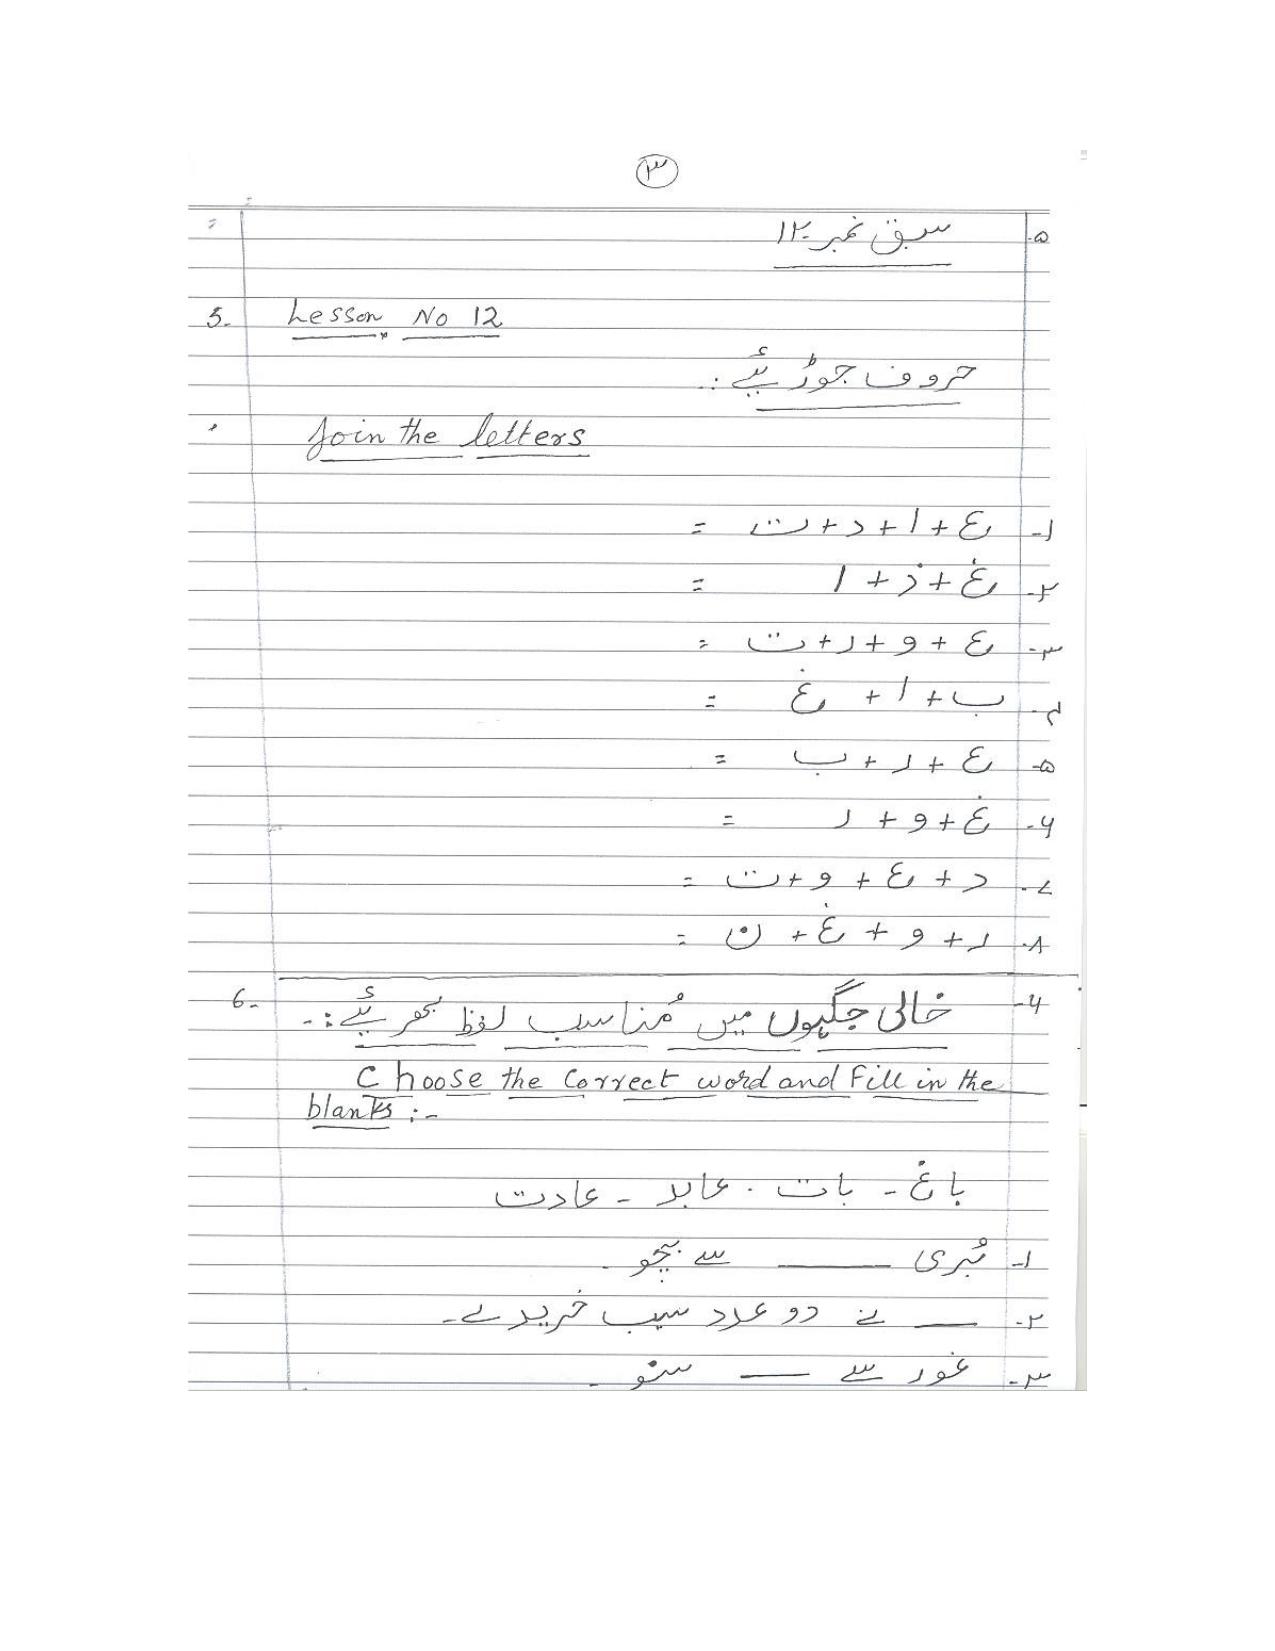 ۳
۵۔ سبق نمبر ۱۲
5. Lesson No 12
حروف جوڑیئے :۔
Join the letters
۱۔ ع + ا + د + ت =
۲۔ غ + ذ + ا =
۳۔ ع + و + ر + ت =
۴۔ ب + ا + غ =
۵۔ ع + ر + ب =
۶۔ غ + و + ر =
۷۔ د + ع + و + ت =
۸۔ ر + و + غ + ن =
6. ۶۔ خالی جگہوں میں مُناسب لفظ بھریئے :۔
Choose the correct word and Fill in the
blanks :-
باغ ۔ بات ۔ عابد ۔ عادت
۱۔ بُری ____ سے بچو ۔
۲۔ ____ نے دو عدد سیب خریدے ۔
۳۔ غور سے ____ سنو ۔